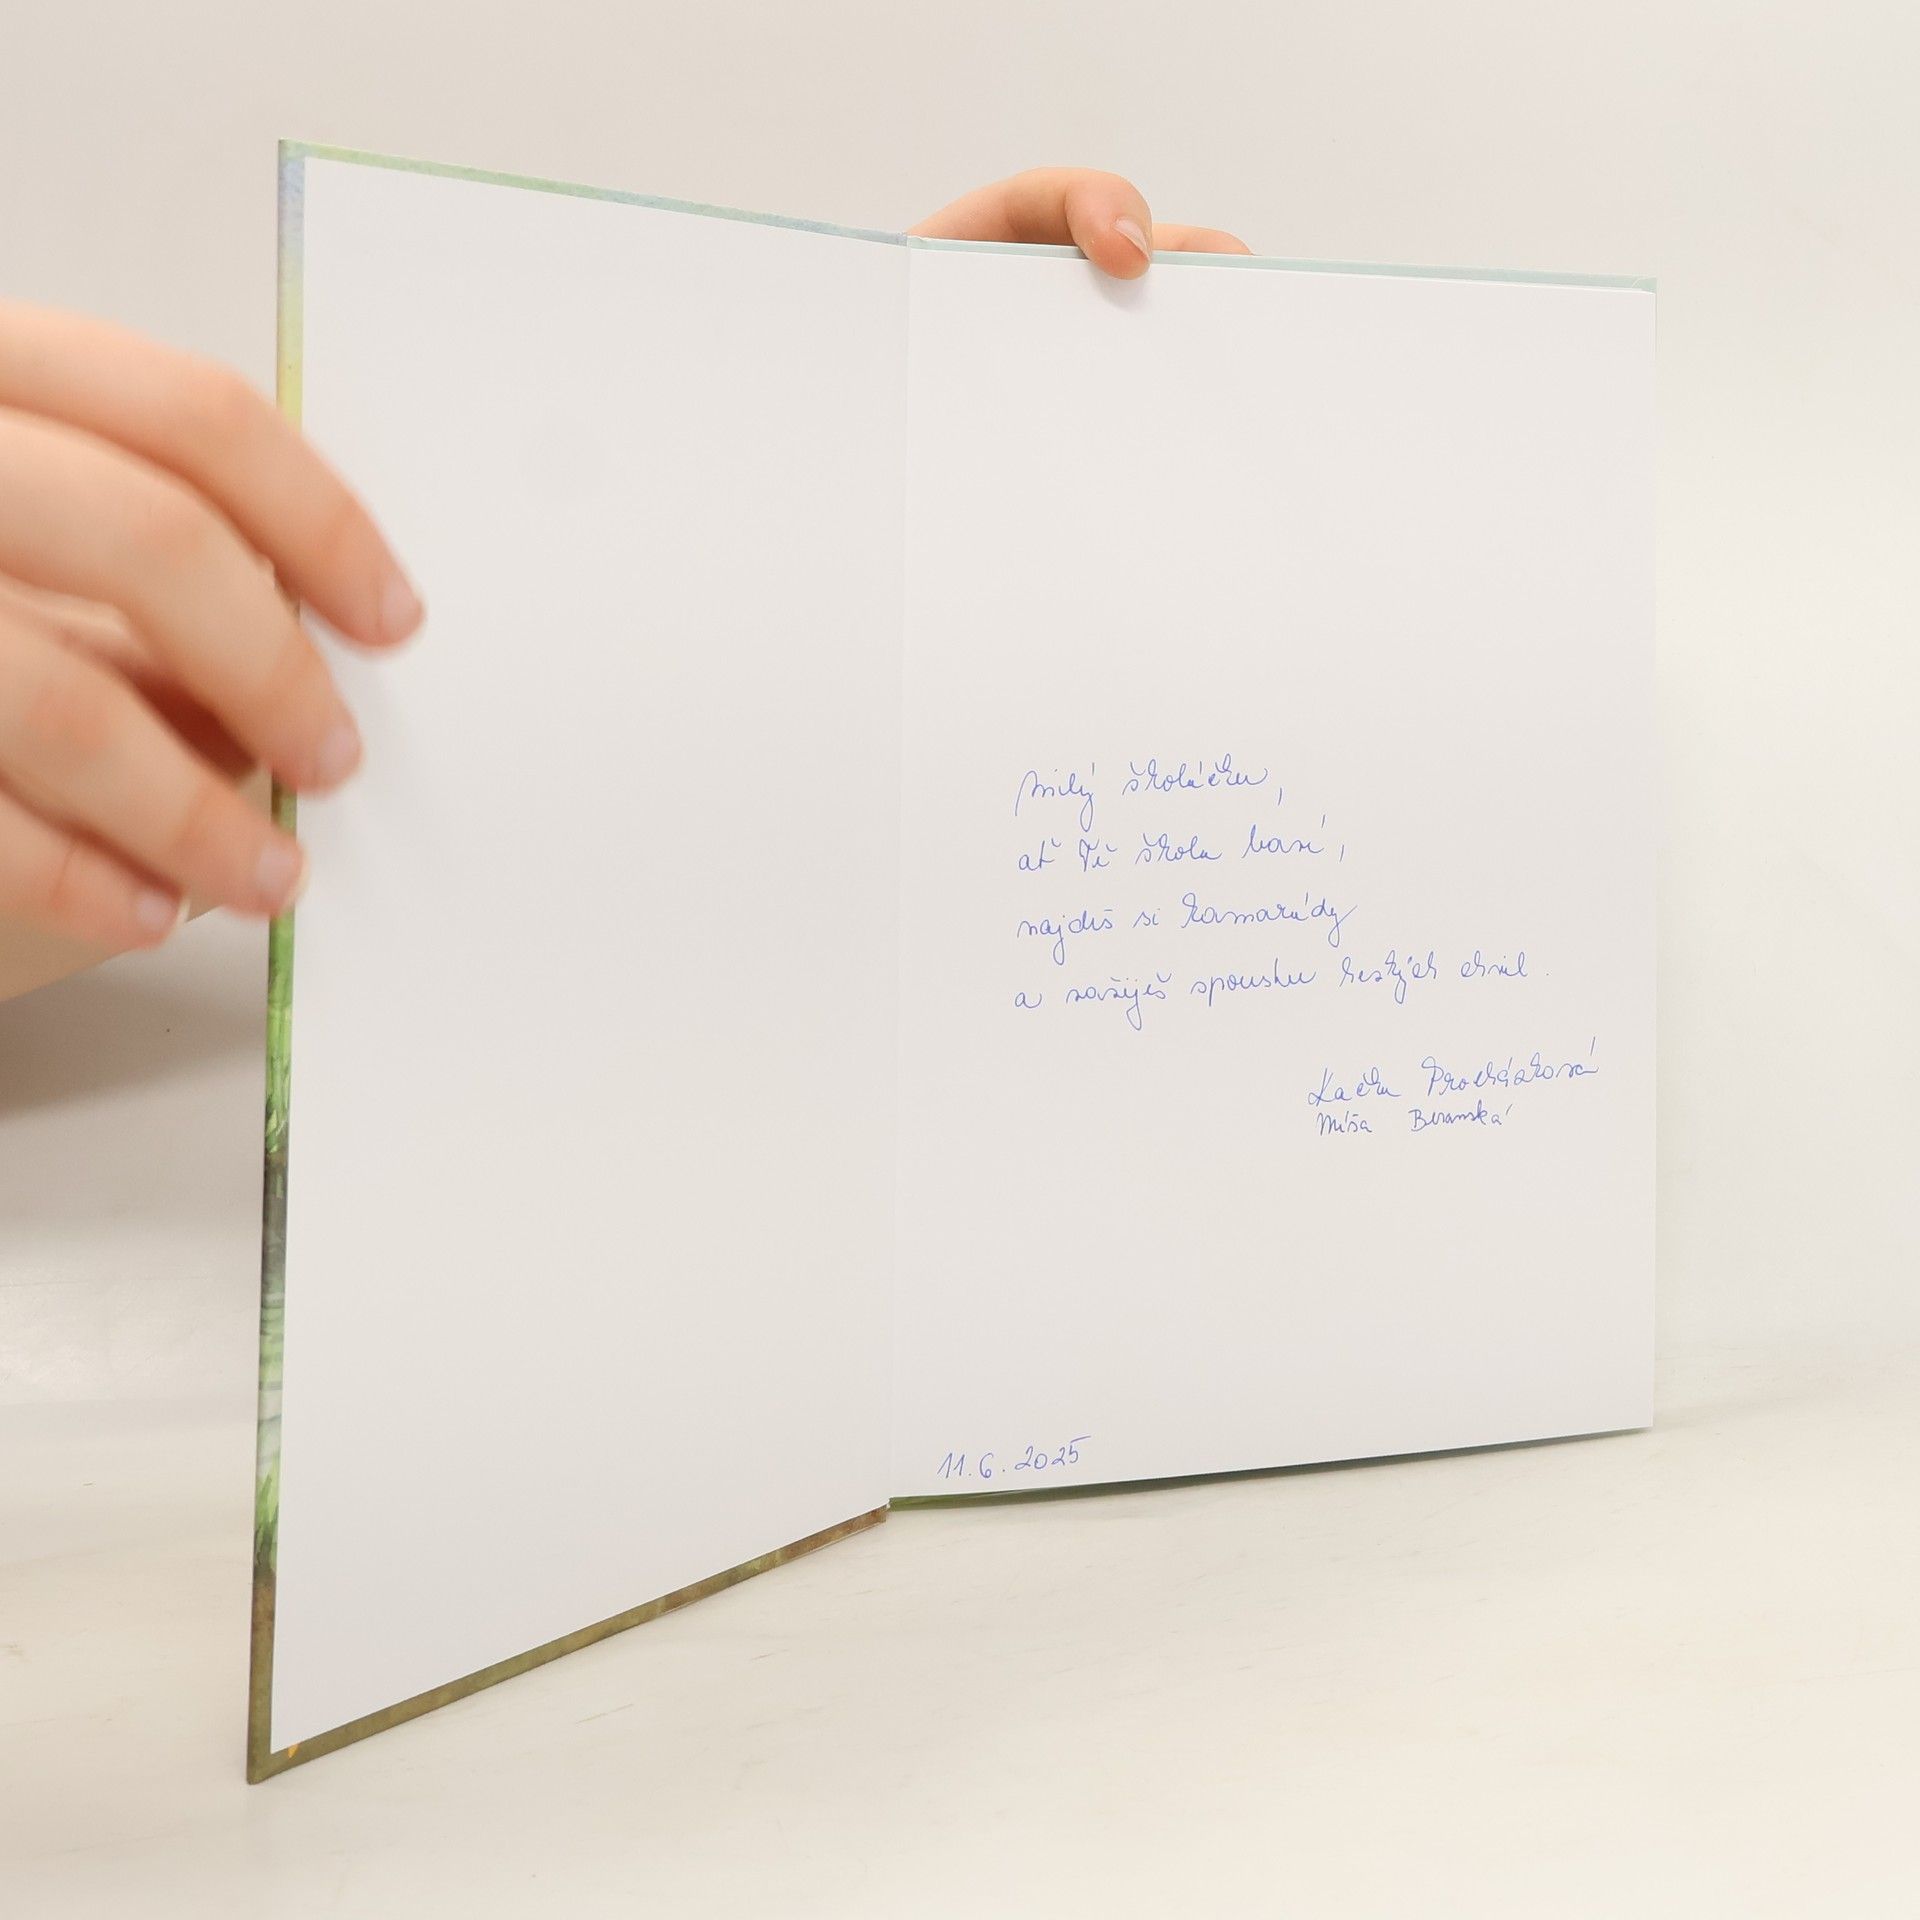 Milý školáčku,
ať Tě škola baví,
najdeš si kamarády
a zažiješ spoustu hezkých chvil.
Kačka Procházková
Míša Beranská
11.6.2025